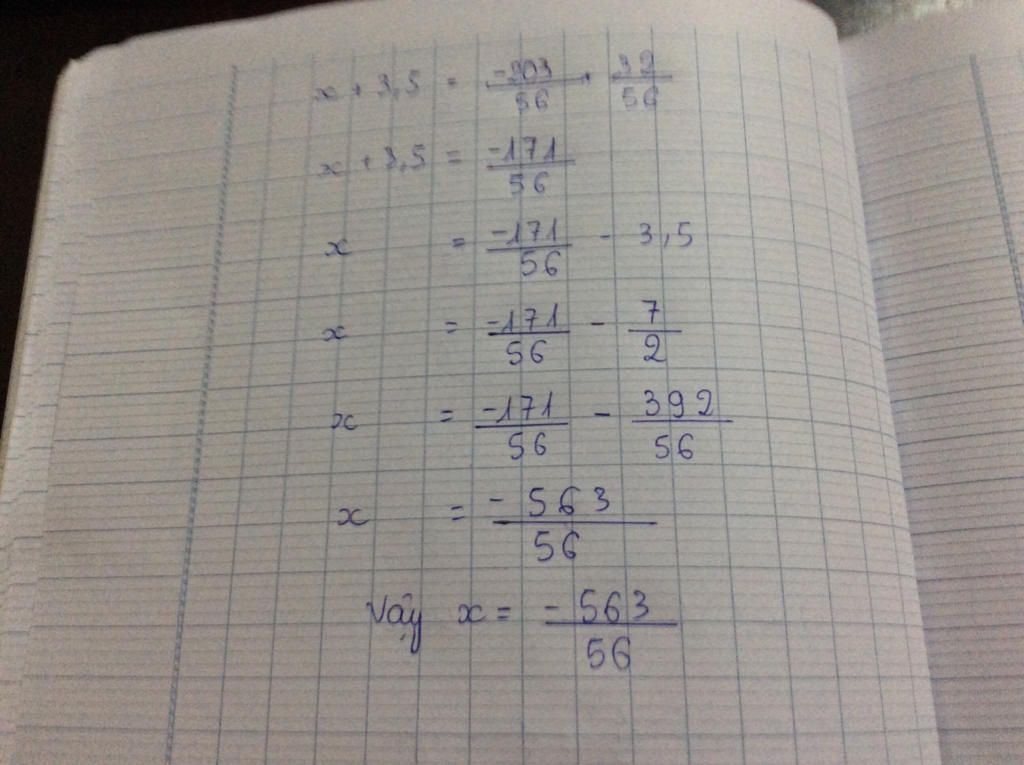 x + 3,5 = -203/56 + 32/56
x + 3,5 = -171/56
x = -171/56 - 3,5
x = -171/56 - 7/2
x = -171/56 - 392/56
x = -563/56
Vậy x = -563/56